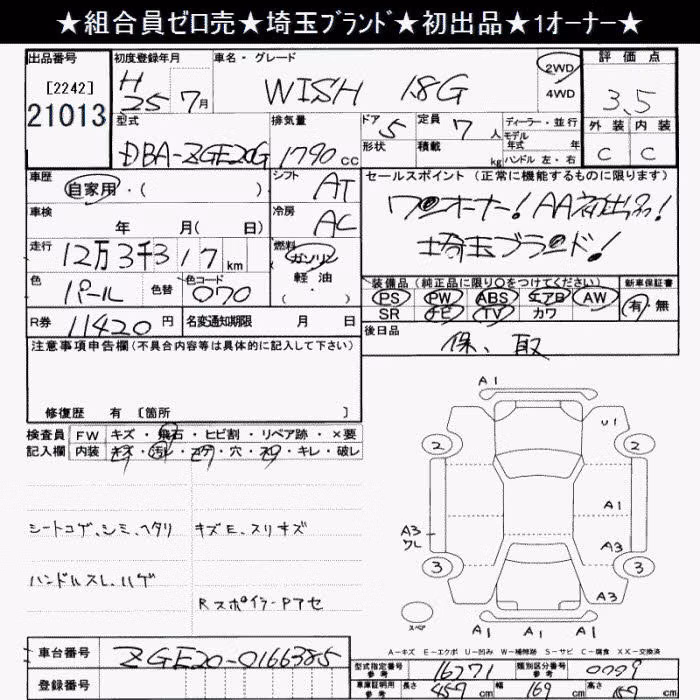 ★組合員ゼロ売★埼玉ブランド★初出品★1オーナー★
出品番号 初度登録年月 車名・グレード 2WD 評価点
[2242] H WISH 1.8G 4WD 3.5
21013 25 7月 外装 内装
型式 排気量 ドア 5 定員 7 人 ディーラー・並行 C C
形状 積載 kg モデル年式 年式
DBA-ZGE20G 1790cc ハンドル 左・右
車歴 シフト AT セールスポイント (正常に機能するものに限ります)
自家用・( ) ワンオーナー! AA初出品!
車検 冷房 AC
年 月( 日) 埼玉ブランド!
走行 12万3千317km 燃料 ガソリン
軽油
・( )
色 パール 色替 色コード 070 装備品(純正品に限り○をつけてください) 新車保証書
PS PW ABS エアB AW 有・無
R券 11420円 名変通知期限 月 日 SR ナビ TV カワ
後日品 保、取
注意事項申告欄(不具合内容等は具体的に記入して下さい)
修復歴 有 〔箇所 〕
検査員 FW キズ・飛石・ヒビ割・リペア跡・×要
記入欄 内装 キズ・汚レ・コゲ・穴・スレ・キレ・破レ
シートコゲ、シミ、ヘタリ キズE、スリキズ
ハンドルスレ、ハゲ
Rスポイラー Pアセ
A1
U1
2 2
A1
A3
ワレ
A1
3 3
A3
スペア
A1 A1 A1
A-キズ E-エクボ U-凹み W-補修跡 S-サビ C-腐食 XX-交換済
車台番号 ZGE20-0166385 型式指定番号 参考 16271 類別区分番号 参考 0009
登録番号 車庫証明用 参考 長さ 459cm 幅 169cm 高さ 159cm